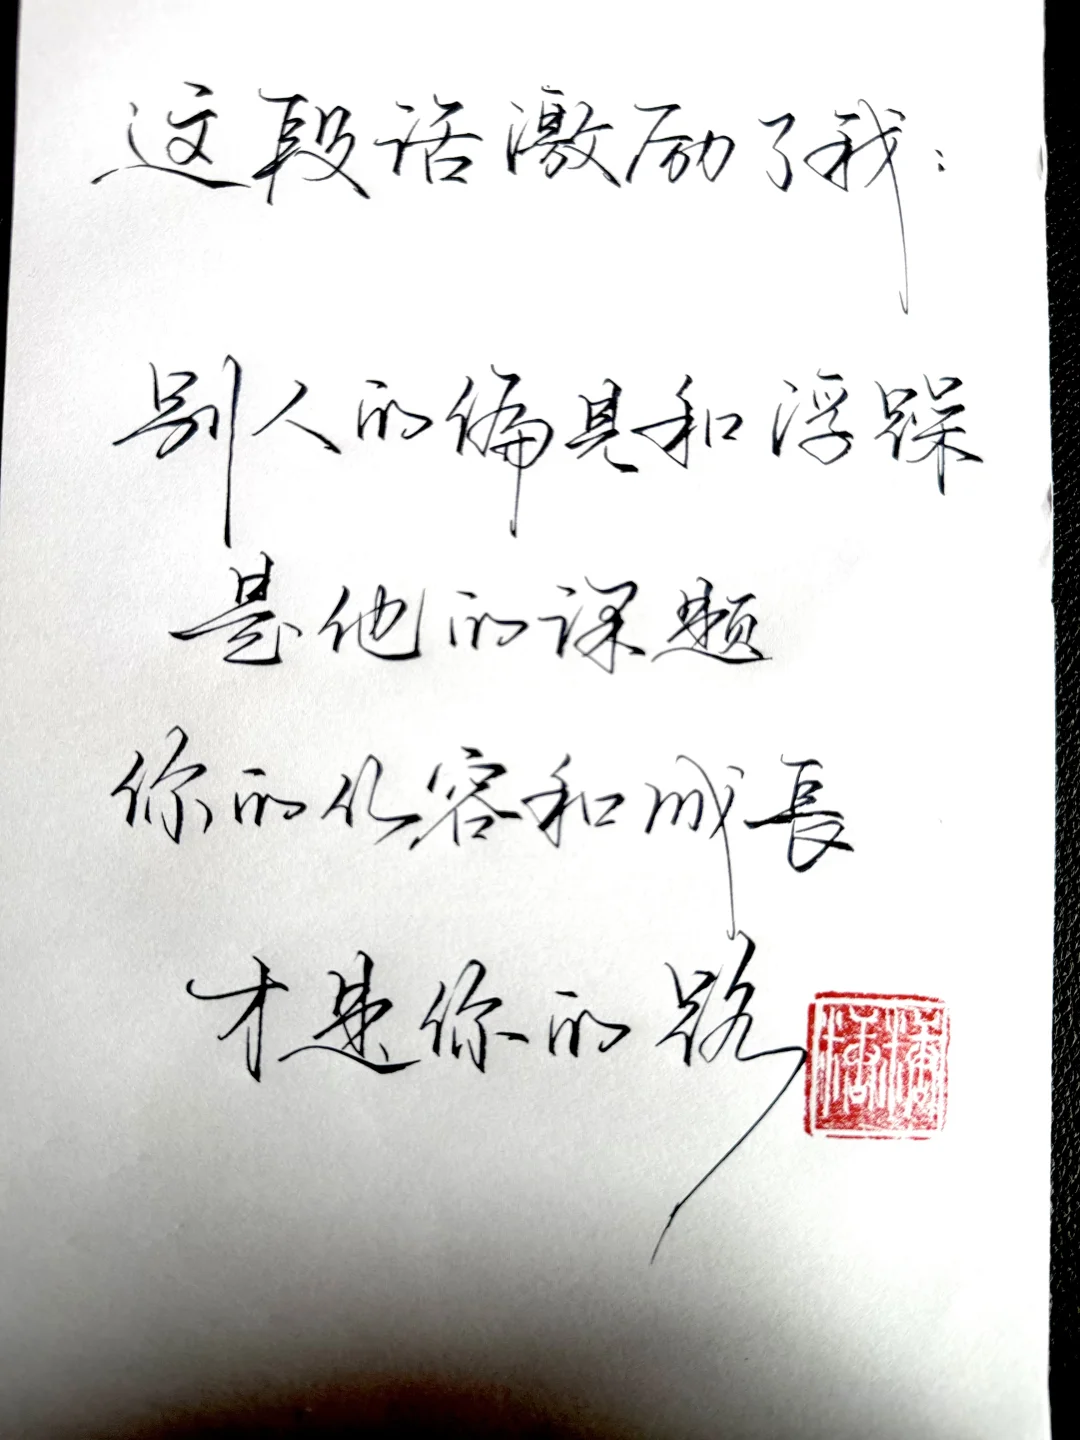 这段话激励了我：
别人的偏見和浮躁
是他的课题
你的从容和成長
才是你的路